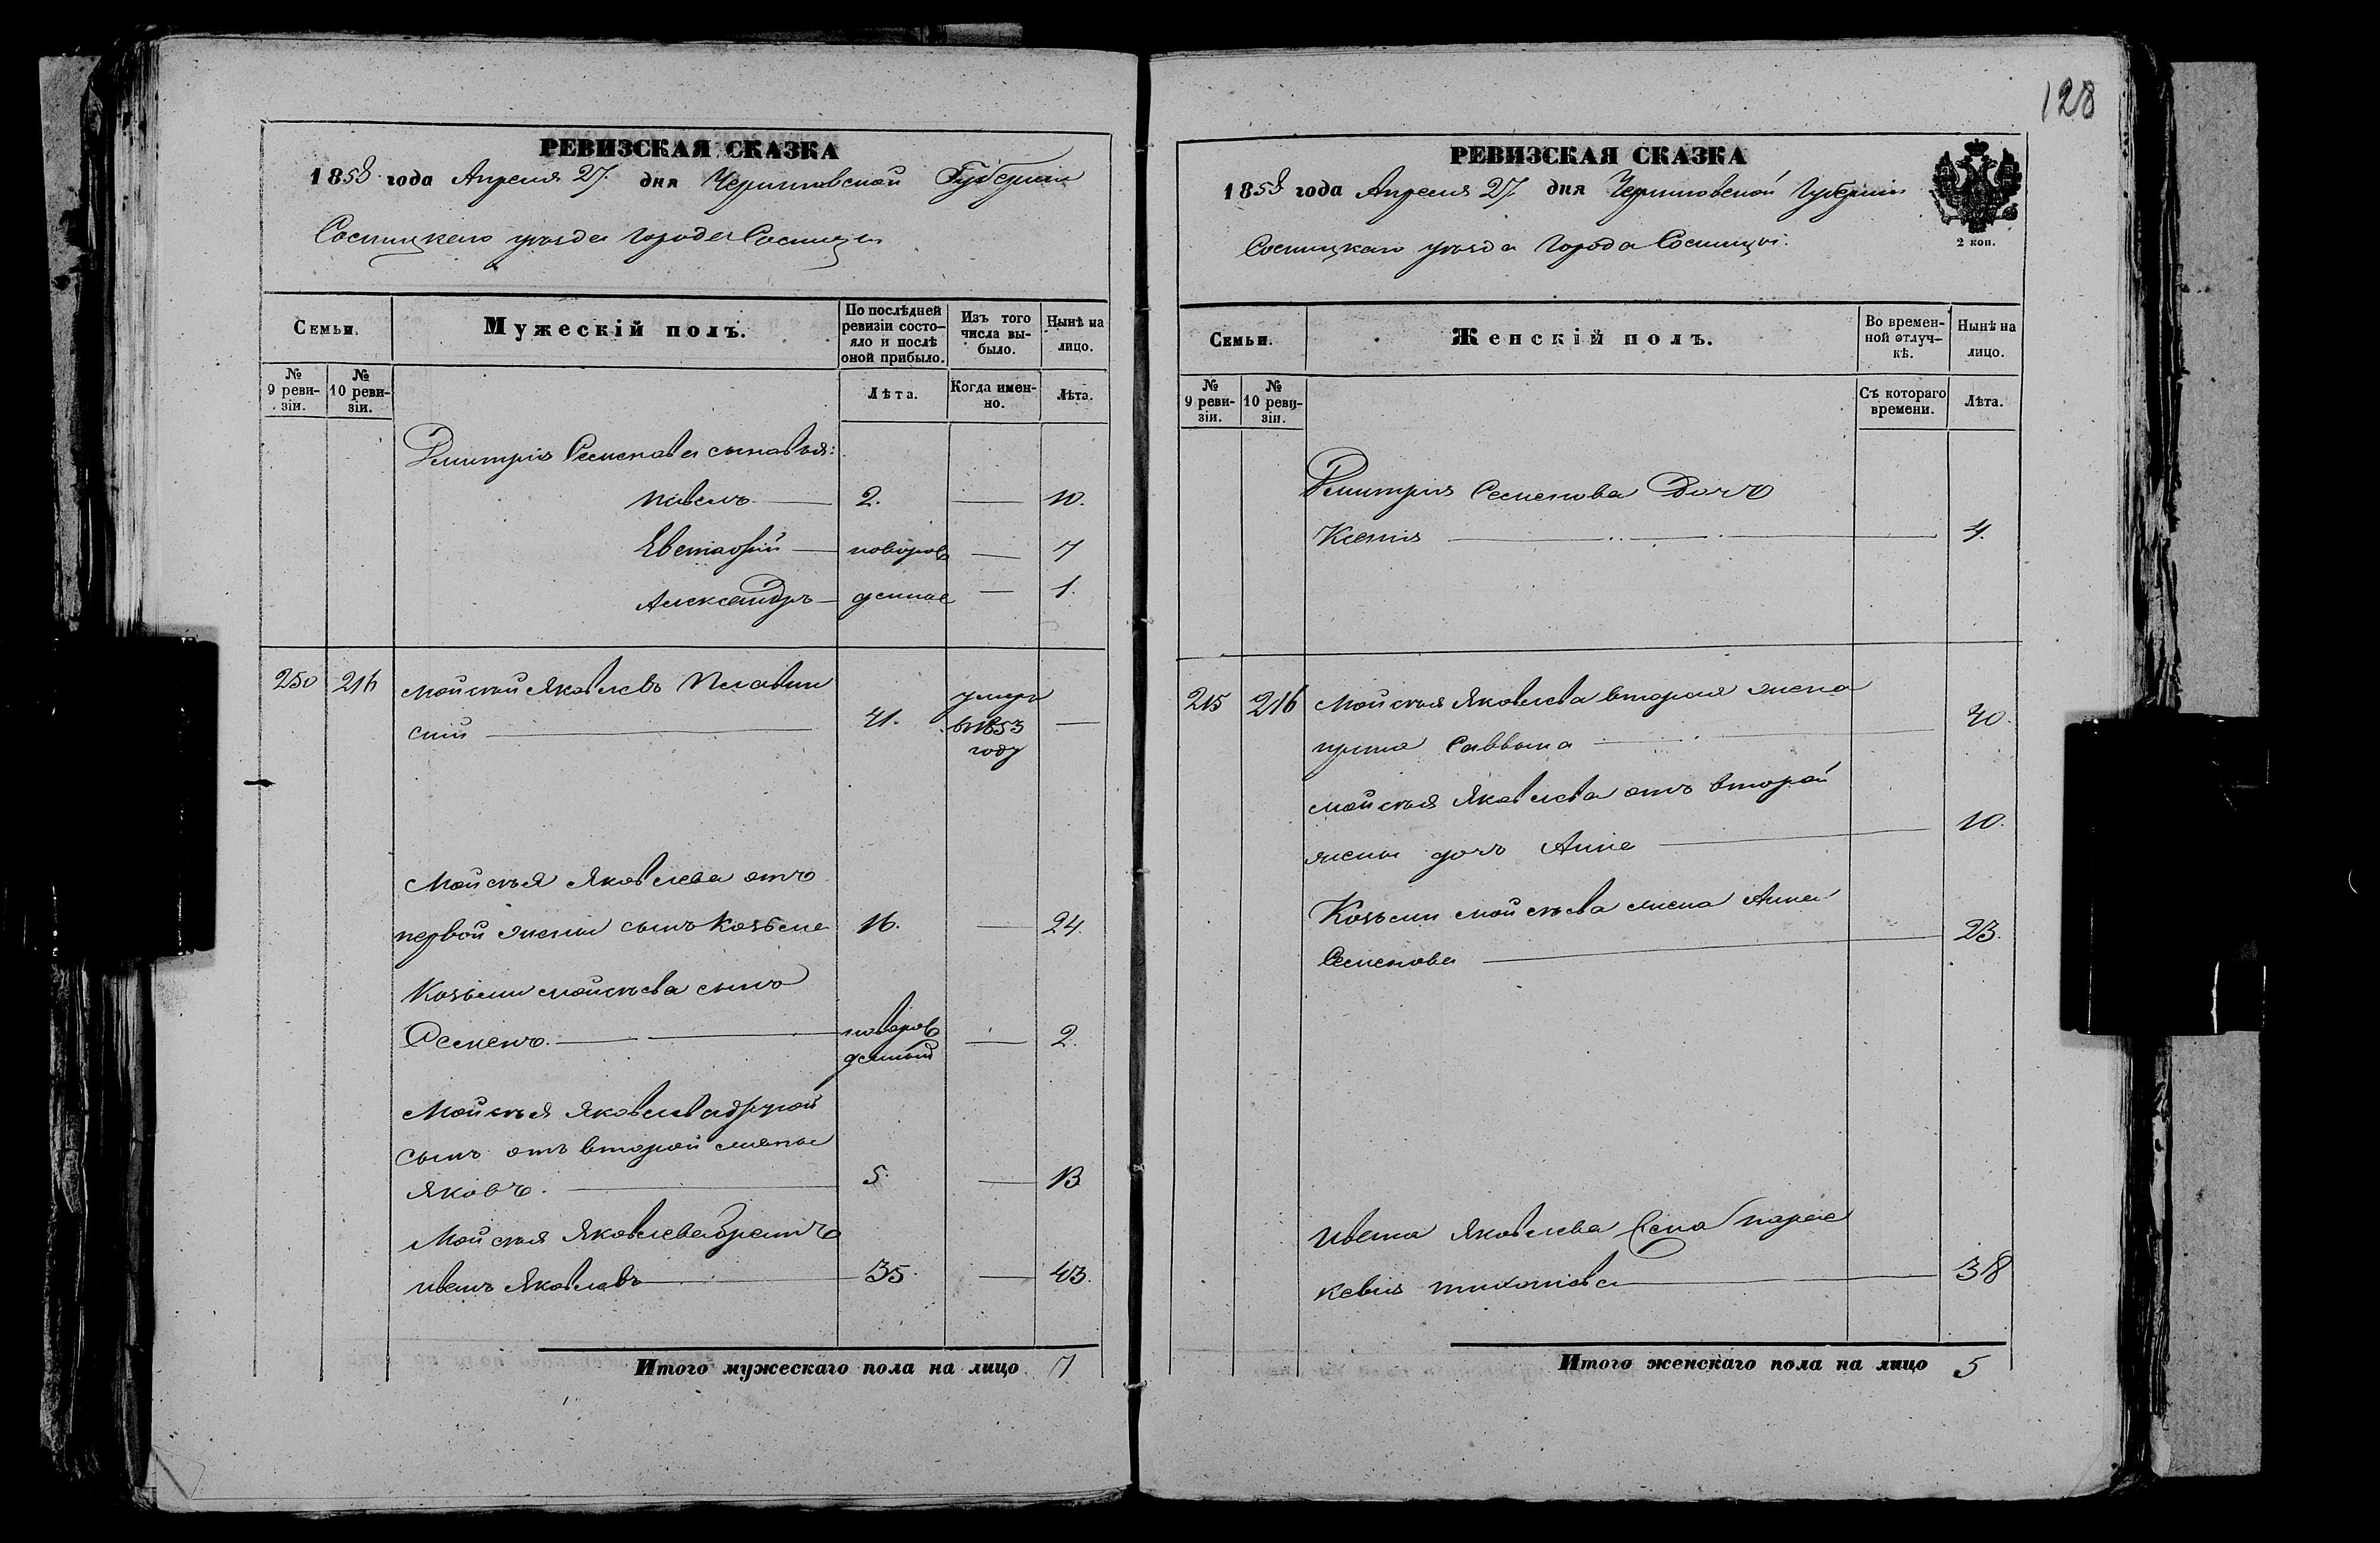 РЕВИЗСКАЯ СКАЗКА
1858 года Апреля 27 дня Черниговской Губернии
Сосницкаго уезда города Сосницы
Семьи.
Мужескій полъ.
По послѣдней ревизіи состо-
яло и послѣ
оной прибыло.
Изъ того
числа вы-
было.
Нынѣ на
лицо.
№
9 реви-
зіи.
№
10 реви-
зіи.
Лѣта.
Когда имен-
но.
Лѣта.
Дмитрія Семенова сыновья:
Павелъ 2. 10.
Евстафій новорож 7
Александръ денные 1.
250 216 Мойсей Яковлевъ
скій 41. умеръ
в 1853
году
Мойсея Яковлева отъ
первой жены сынъ Козьма 16. 24.
Козьмы Мойсеева сынъ
Семенъ. новорож
денный 2.
Мойсея Яковлева другой
сынъ отъ второй жены
Яковъ. 5. 13
Мойсея Яковлева братъ
Иванъ Яковлевъ 35. 43.
Итого мужескаго пола на лицо 7
128
РЕВИЗСКАЯ СКАЗКА
1858 года Апреля 27 дня Черниговской Губерніи
Сосницкаго уезда Города Сосницы.
2 коп.
Семьи.
Женскій полъ.
Во времен-
ной отлуч-
кѣ.
Нынѣ на
лицо.
№
9 реви-
зіи.
№
10 реви-
зіи.
Съ котораго
времени.
Лѣта.
Дмитрия Семенова Дочь
Ксенія 4.
215 216 Мойсея Яковлева вторая жена
Саввына 40.
Мойсея Яковлева отъ второй
жены дочь Анна 10.
Козьмы Мойсеева жена Анна
Семенова 23.
Ивана Яковлева жена Парас
кевия Тихонова 38
Итого женскаго пола на лицо 5